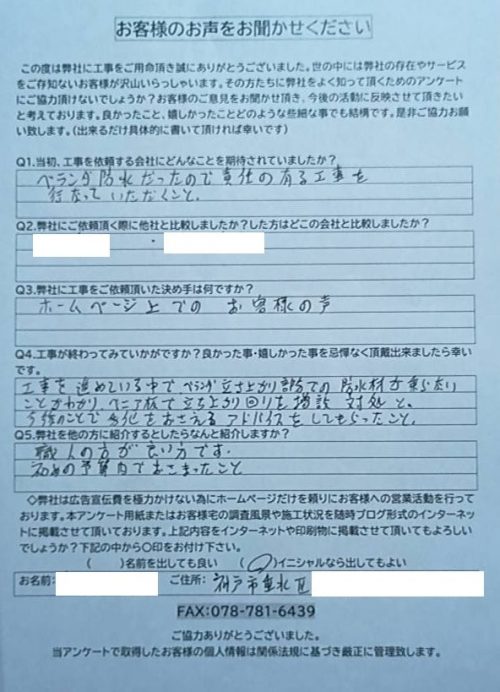 お客様のお声をお聞かせください
この度は弊社に工事をご用命頂き誠にありがとうございました。世の中には弊社の存在やサービス
をご存知ないお客様が沢山いらっしゃいます。その方たちに弊社をよく知って頂くためのアンケート
にご協力頂けないでしょうか？お客様のご意見をお聞かせ頂き、今後の活動に反映させて頂きたい
と考えております。良かったこと、嬉しかったことどのような些細な事でも結構です。是非ご協力お願
い致します。(出来るだけ具体的に書いて頂ければ幸いです)
Q1.当初、工事を依頼する会社にどんなことを期待されていましたか？
ベランダ防水だったので責任の有る工事を
行なっていただくこと。
Q2.弊社にご依頼頂く際に他社と比較しましたか？した方はどこの会社と比較しましたか？
Q3.弊社に工事をご依頼頂いた決め手は何ですか？
ホームページ上での お客様の声
Q4.工事が終わってみていかがですか？良かった事・嬉しかった事を忌憚なく頂戴出来ましたら幸い
です。
工事を進めている中でベランダ立ち上がり部での防水材が乗らない
ことがわかり、ベニア板で立ち上がり回りを増設 対処と、
今後のことで劣化をおさえるアドバイスをしてもらったこと。
Q5.弊社を他の方に紹介するとしたらなんと紹介しますか？
職人の方が良い方です。
初めの予算内でおさまったこと
◇弊社は広告宣伝費を極力かけない為にホームページだけを頼りにお客様への営業活動を行って
おります。本アンケート用紙またはお客様宅の調査風景や施工状況を随時ブログ形式のインターネッ
トに掲載させて頂いております。上記内容をインターネットや印刷物に掲載させて頂いてもよろしい
でしょうか？下記の中から〇印をお付け下さい。
( )名前を出しても良い (〇)イニシャルなら出してもよい
お名前: ご住所: 神戸市垂水区
FAX:078-781-6439
ご協力ありがとうございました。
当アンケートで取得したお客様の個人情報は関係法規に基づき厳正に管理致します。